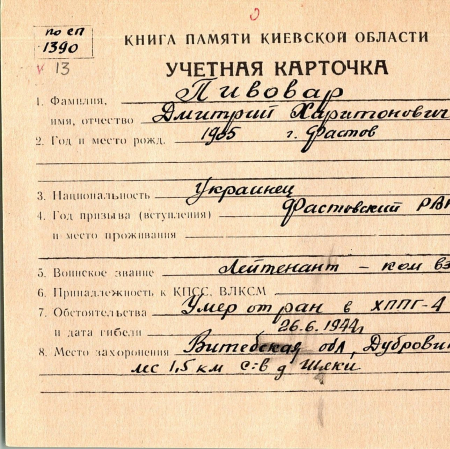 по сп
1390
13
КНИГА ПАМЯТИ КИЕВСКОЙ ОБЛАСТИ
УЧЕТНАЯ КАРТОЧКА
1. Фамилия, Пивовар
имя, отчество Дмитрий Харитонович
2. Год и место рожд. 1905 г. Фастов
3. Национальность Украинец
4. Год призыва (вступления) Фастовский РВК
и место проживания
5. Воинское звание Лейтенант – ком вз
6. Принадлежность к КПСС, ВЛКСМ
7. Обстоятельства Умер от ран в ХППГ-4
и дата гибели 26.6.1944г
8. Место захоронения Витебская обл, Дубровин
лес 1,5 км С:В д